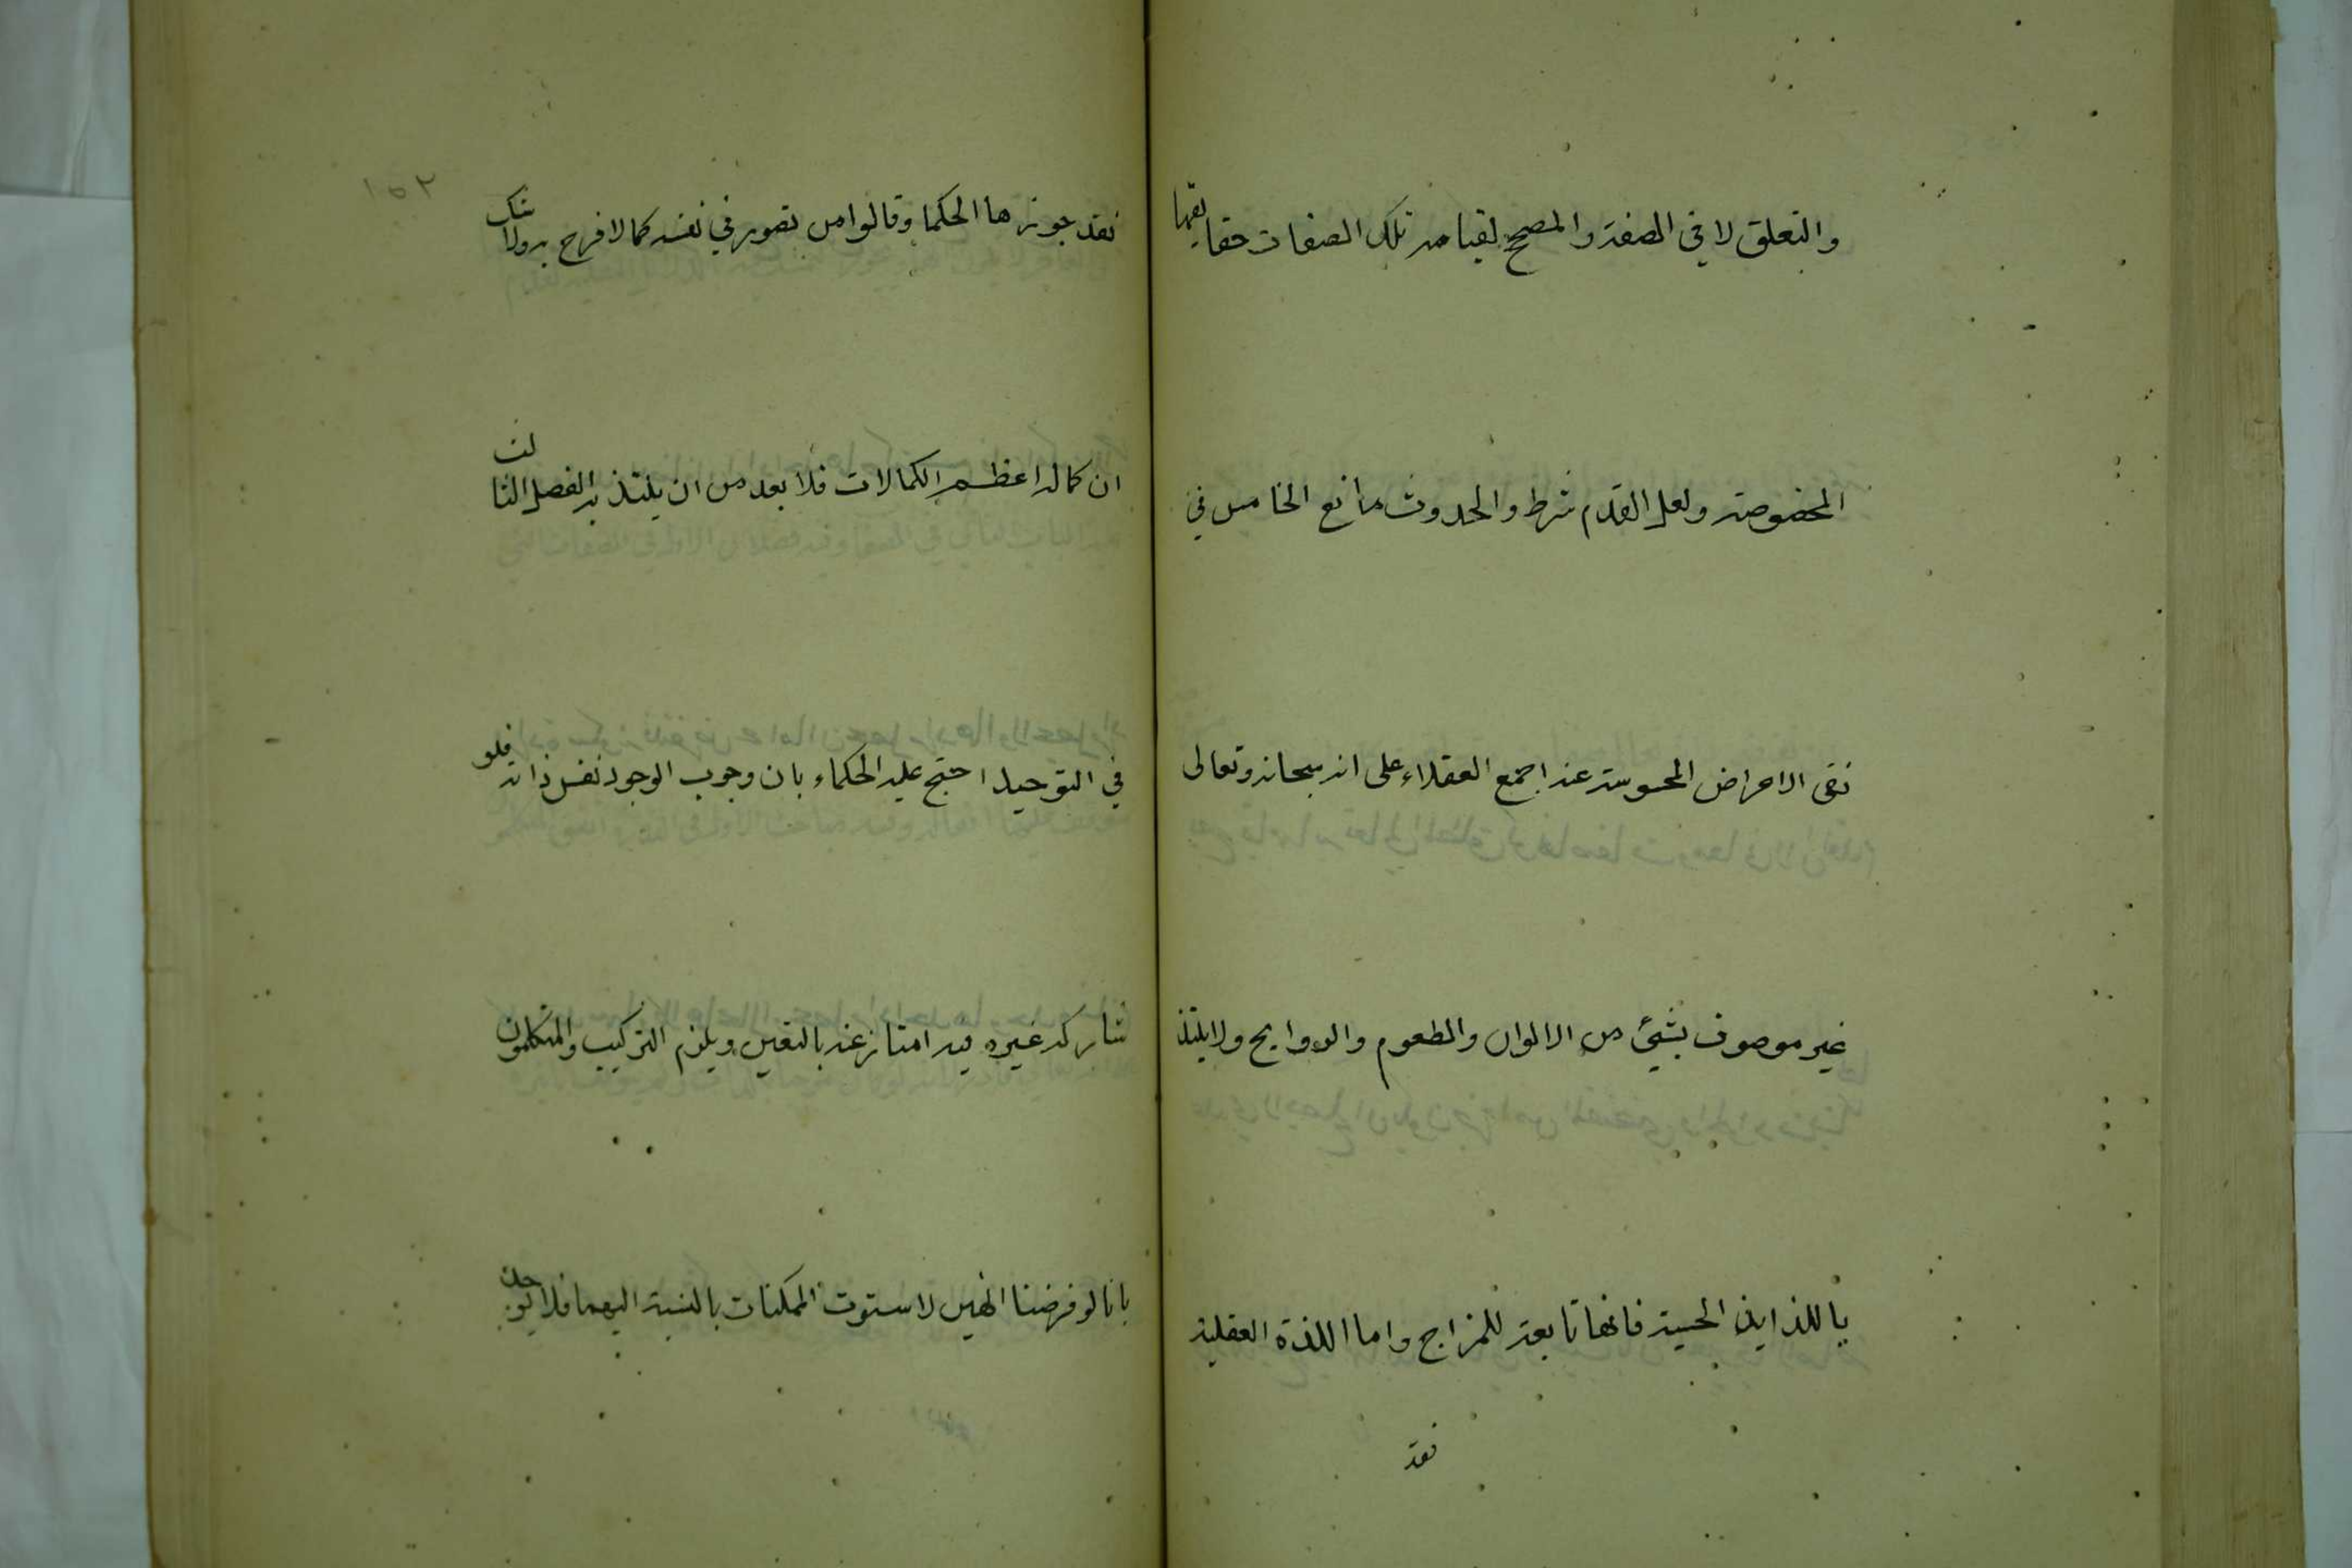 والتعلق لا في الصفة والمصحح لقيامه تلك الصفات حقايقها
المخصوصة ولعل القدم شرط والحدوث مانع الخامس في
نفى الاعراض المحسوسة عنه اجمع العقلاء على انه سبحانه وتعالى
غير موصوف بشيئ من الالوان والطعوم والروايح ولا يلتذ
باللذايذ الحسية فانها تابعة للمزاج واما اللذة العقلية
فقد
١٥٢
فقد جوزها الحكما وقالوا من تصور في نفسه كمالا فرح به ولا شك
ان كماله اعظم الكمالات فلا بعد من ان يلتذ به الفصل الثالث
في التوحيد احتج عليه الحكماء بان وجوب الوجود نفس ذاته فلو
شاركه غيره فيه امتاز عنه بالتعين ويلزم التركيب والمتكلمون
بانا لو فرضنا الهين لاستوت الممكنات بالنسبة اليهما فلا يوجد